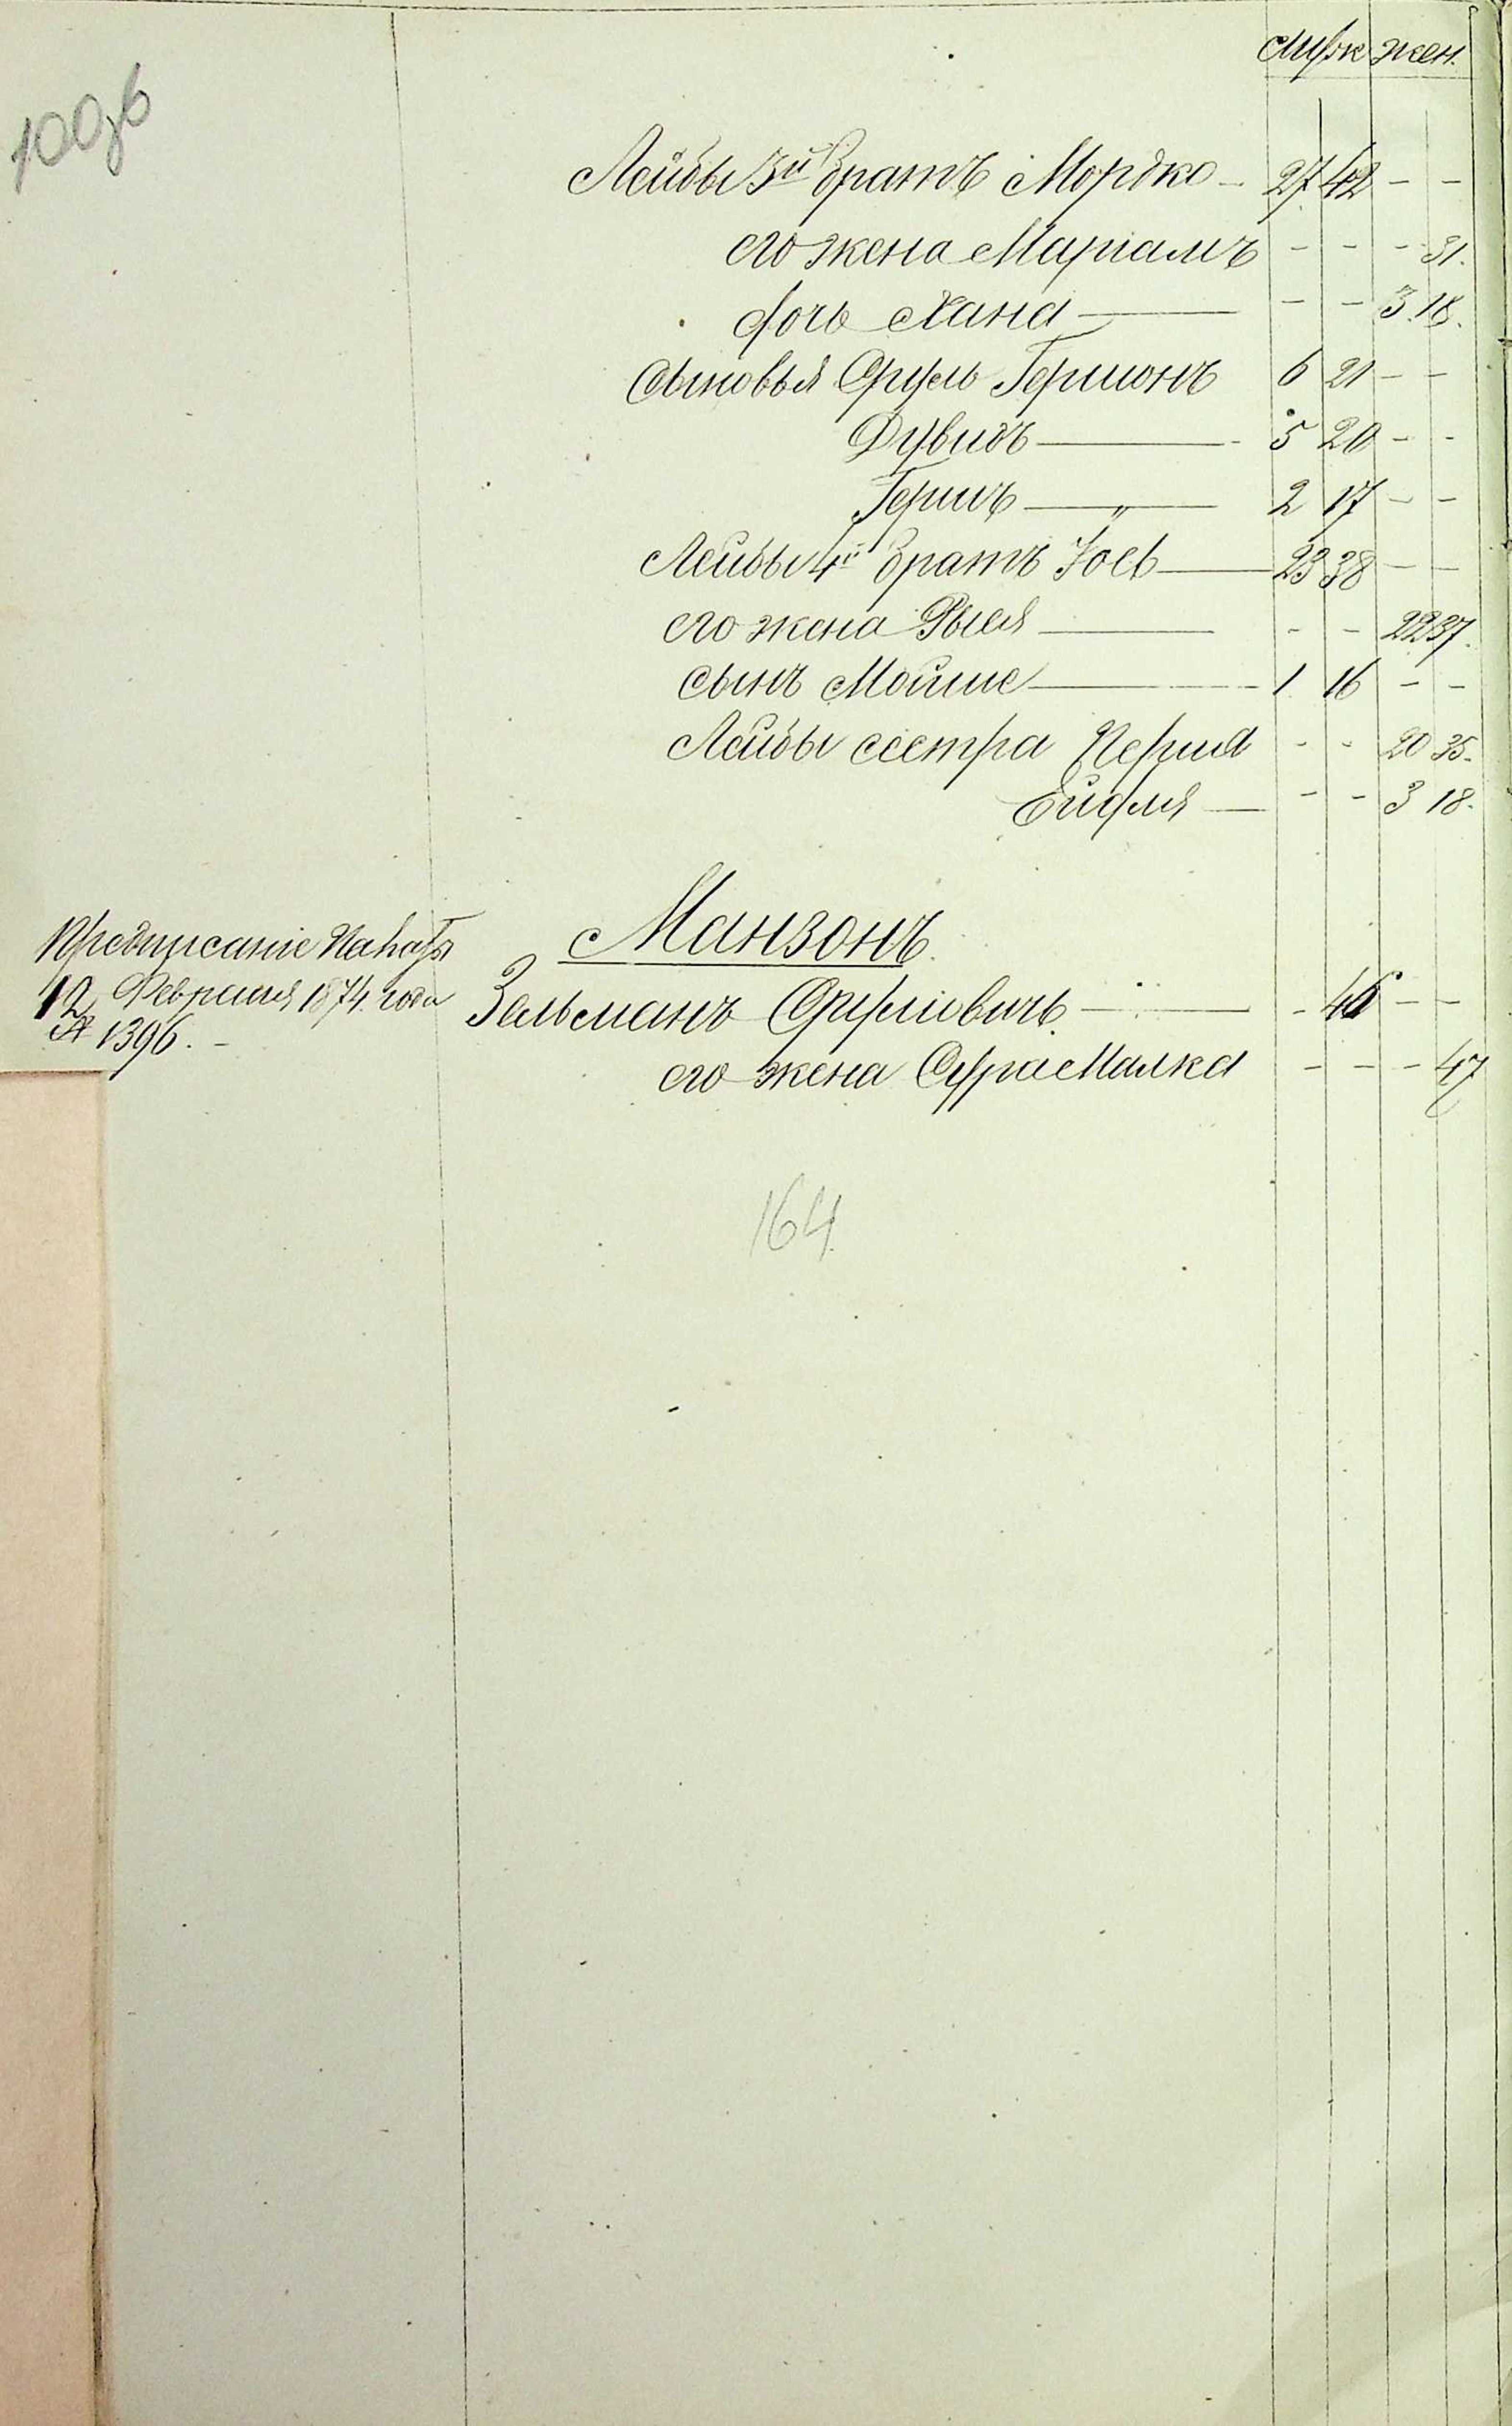 муж жен.
100об
Лейбы 3й братъ Мордко - 27 42 - -
его жена Маріамъ - - - 31.
дочь Хана - - 3. 18.
Сыновья Сруль Гершонъ 6 21 - -
Дувидъ - 5 20 - -
Гершъ - 2 17 - -
Лейбы 4й братъ Іось 23 38 - -
его жена Рыся - - 22 37.
сынъ Мойше - 1 16 - -
Лейбы сестра Перля - - 20 35.
Ейдля - - 3 18.
Манзонъ.
Предписаніе
12 Февраля 1874 года
№ 1396. -
Зельманъ Срулiовичъ - - 46 - -
его жена Сура Малка - - - 47
164